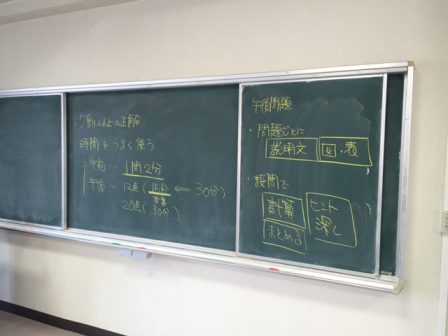 ・7割以上の正解
時間をうまく使う
午前 ー 1問2分
午後 ー 12点(15分 ⇐ 30分)
20点(30分)
午後問題
・問題ごとに
説明文 図・表
・設問で
計算 ヒント探し
まとめる